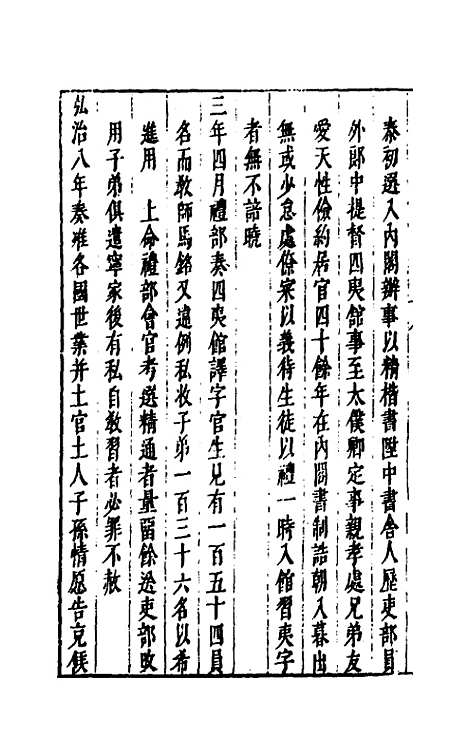 泰初選入內閣辦事以精楷書陞中書舍人歷吏部員
外郎中提督四夷舘事至太僕卿定事親孝處兄弟友
愛天性儉約居官四十餘年在內閣書制誥朝入暮出
無或少怠處僚寀以義待生徒以禮一時入館習夷字
者無不諳曉
三年四月禮部奏四夷館譯字官生見有一百五十四員
名而敎師馬銘又違例私收子弟一百三十六名以希
進用　上命禮部會官考選精通者量留餘送吏部改
用子弟俱遣寧家後有私自敎習者必罪不赦
弘治八年奏准各國世業并土官土人子孫情愿告克候